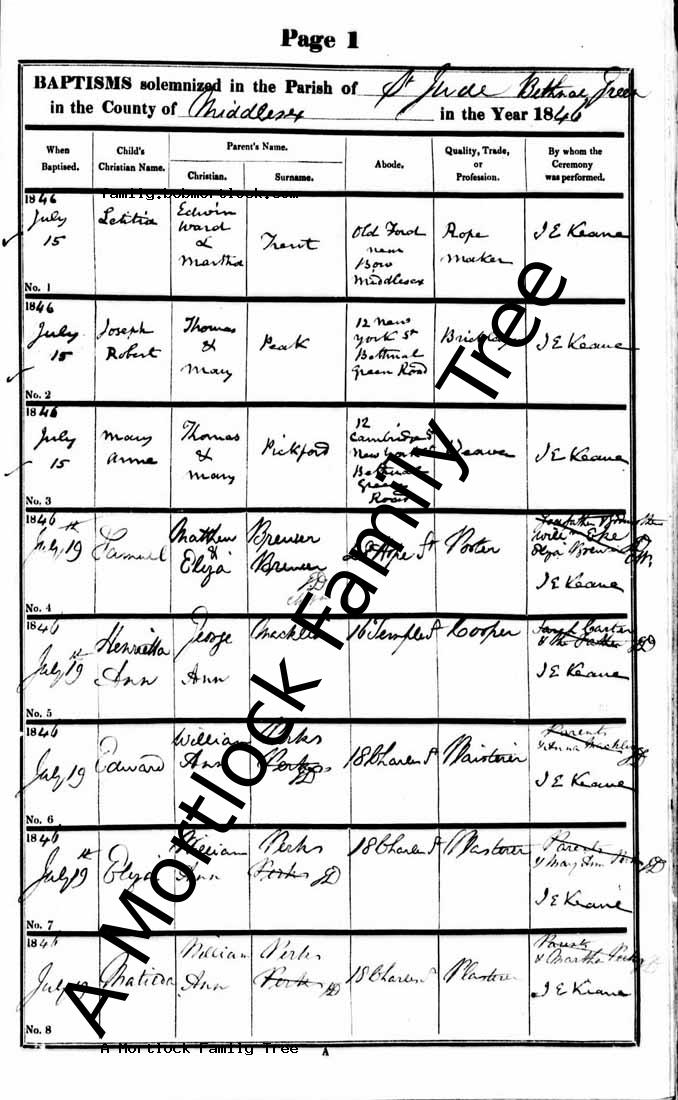 Page 1
BAPTISMS solemnized in the Parish of St Jude Bethnal Green
in the County of Middlesex in the Year 1846
When Baptised.
Child's Christian Name.
Parent's Name.
Christian.
Surname.
Abode.
Quality, Trade, or Profession.
By whom the Ceremony was performed.
family.bobmortlock.com
1846
July
15
No. 1
Letitia
Edwin
Ward
&
Martha
Trent
Old Ford
near
Bow
Middlesex
Rope
Maker
J E Keane
1846
July
15
No. 2
Joseph
Robert
Thomas
&
Mary
Peak
12 New
York St
Bethnal
Green Road
J E Keane
1846
July
15
No. 3
Mary
Anne
Thomas
&
Mary
Pickford
12
Cambridge St
New York St
Bethnal
Green
Road
Weaver
J E Keane
1846
July 19th
No. 4
Samuel
Matthew
&
Eliza
Brewer
Brewer
JD
Hope St
Porter
J E Keane
1846
July 19th
No. 5
Henrietta
Ann
George
Ann
16 Temple St
Cooper
Sarah Carter
& the Father JD
J E Keane
1846
July 19
No. 6
Edward
William
Ann
Perks
Perks
JD
18 Charles St
Plaisterer
Parents
J E Keane
1846
July 19th
No. 7
Eliza
William
Ann
Perks
Perks JD
18 Charles St
Plasterer
Parents
& Mary Ann Perks JD
J E Keane
1846
July 19
No. 8
Matilda
William
Ann
Perks
Perks JD
18 Charles St
Plasterer
Parents
& Martha Perks
J E Keane
A Mortlock Family Tree
A Mortlock Family Tree
A